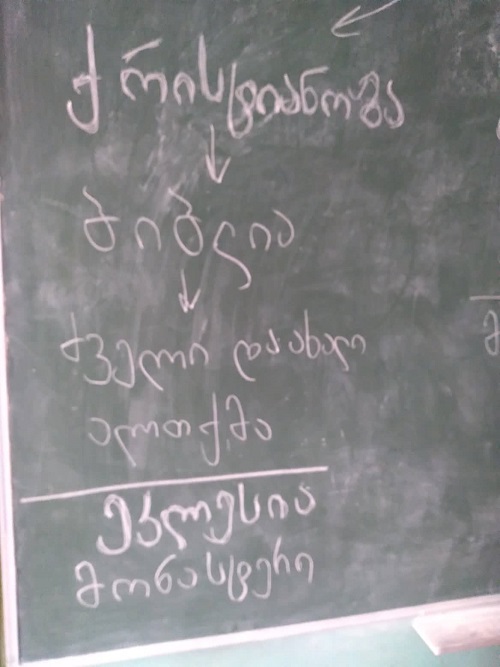 ქრისტიანობა
ბიბლია
ძველი და ახალი
აღთქმა
ეკლესია
მონასტერი